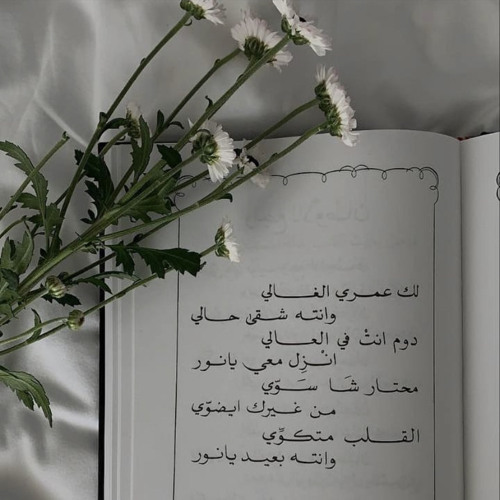 لك عمري الغـــالي
وانته شقىٰ حــالي
دوم انتْ في العـــالي
انْزِل معي يانور
محتـار شَـا سَـــوّي
من غـــيرك ايضوّي
القـــلب متكـوِّي
وانته بعيـد يانور